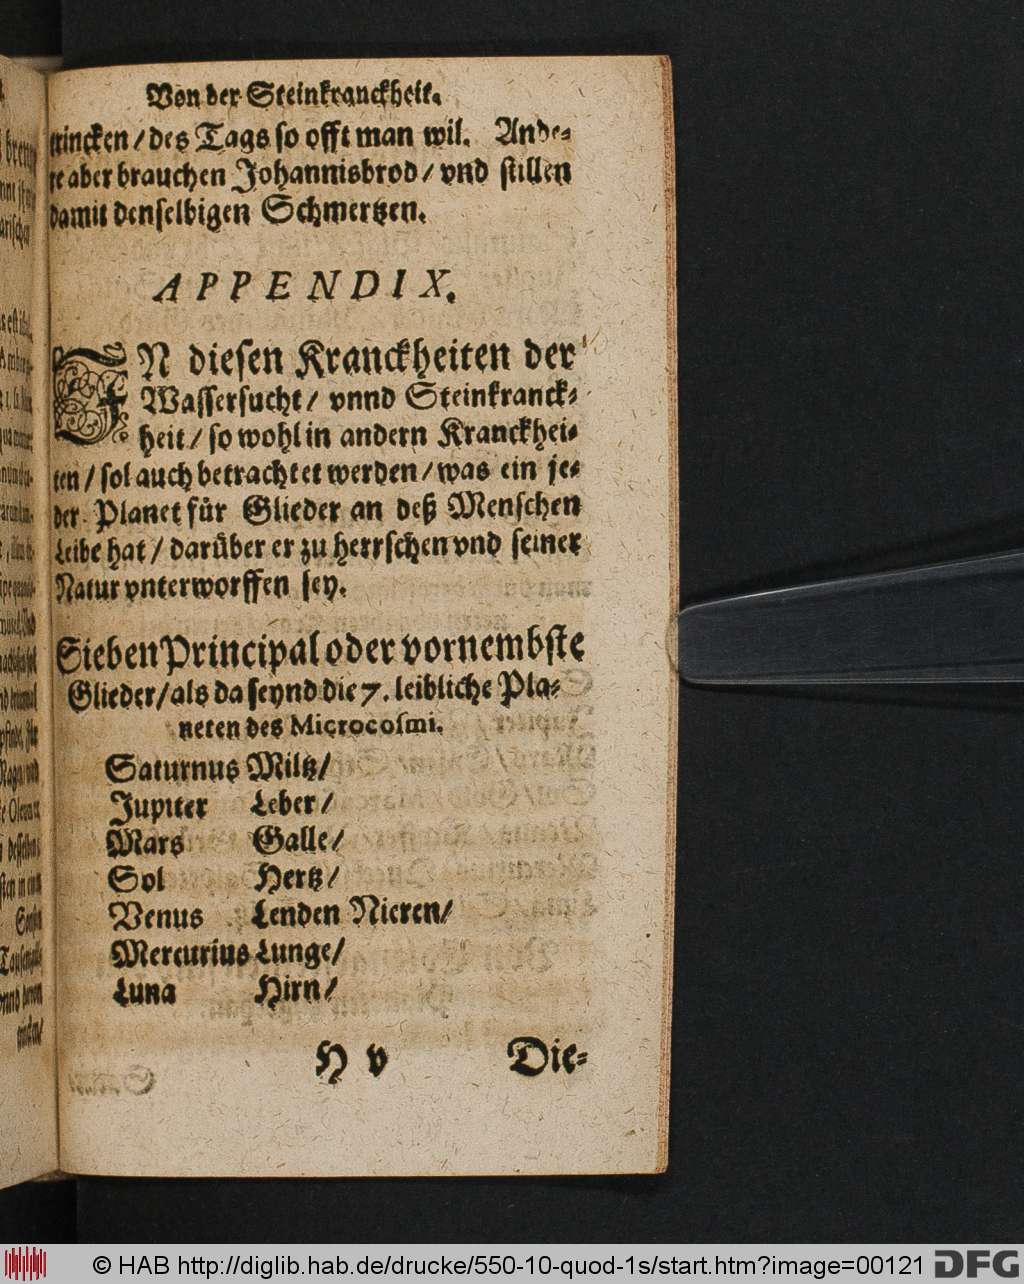 Von der Steinkranckheit.
trincken / des Tags so offt man wil. Ande⸗
re aber brauchen Johannisbrod / vnd stillen
damit denselbigen Schmertzen.
APPENDIX.
IN diesen Kranckheiten der
Wassersucht / vnnd Steinkranck⸗
heit / so wohl in andern Kranckhei⸗
ten / sol auch betrachtet werden / was ein je⸗
der Planet für Glieder an deß Menschen
Leibe hat / darüber er zu herrschen vnd seiner
Natur vnterworffen sey.
Sieben Principal oder vornembste
Glieder / als da seynd die 7. leibliche Pla⸗
neten des Microcosmi.
Saturnus Miltz /
Jupiter Leber /
Mars Galle /
Sol Hertz /
Venus Lenden Nieren /
Mercurius Lunge /
Luna Hirn /
H v Die⸗
© HAB http://diglib.hab.de/drucke/550-10-quod-1s/start.htm?image=00121
DFG